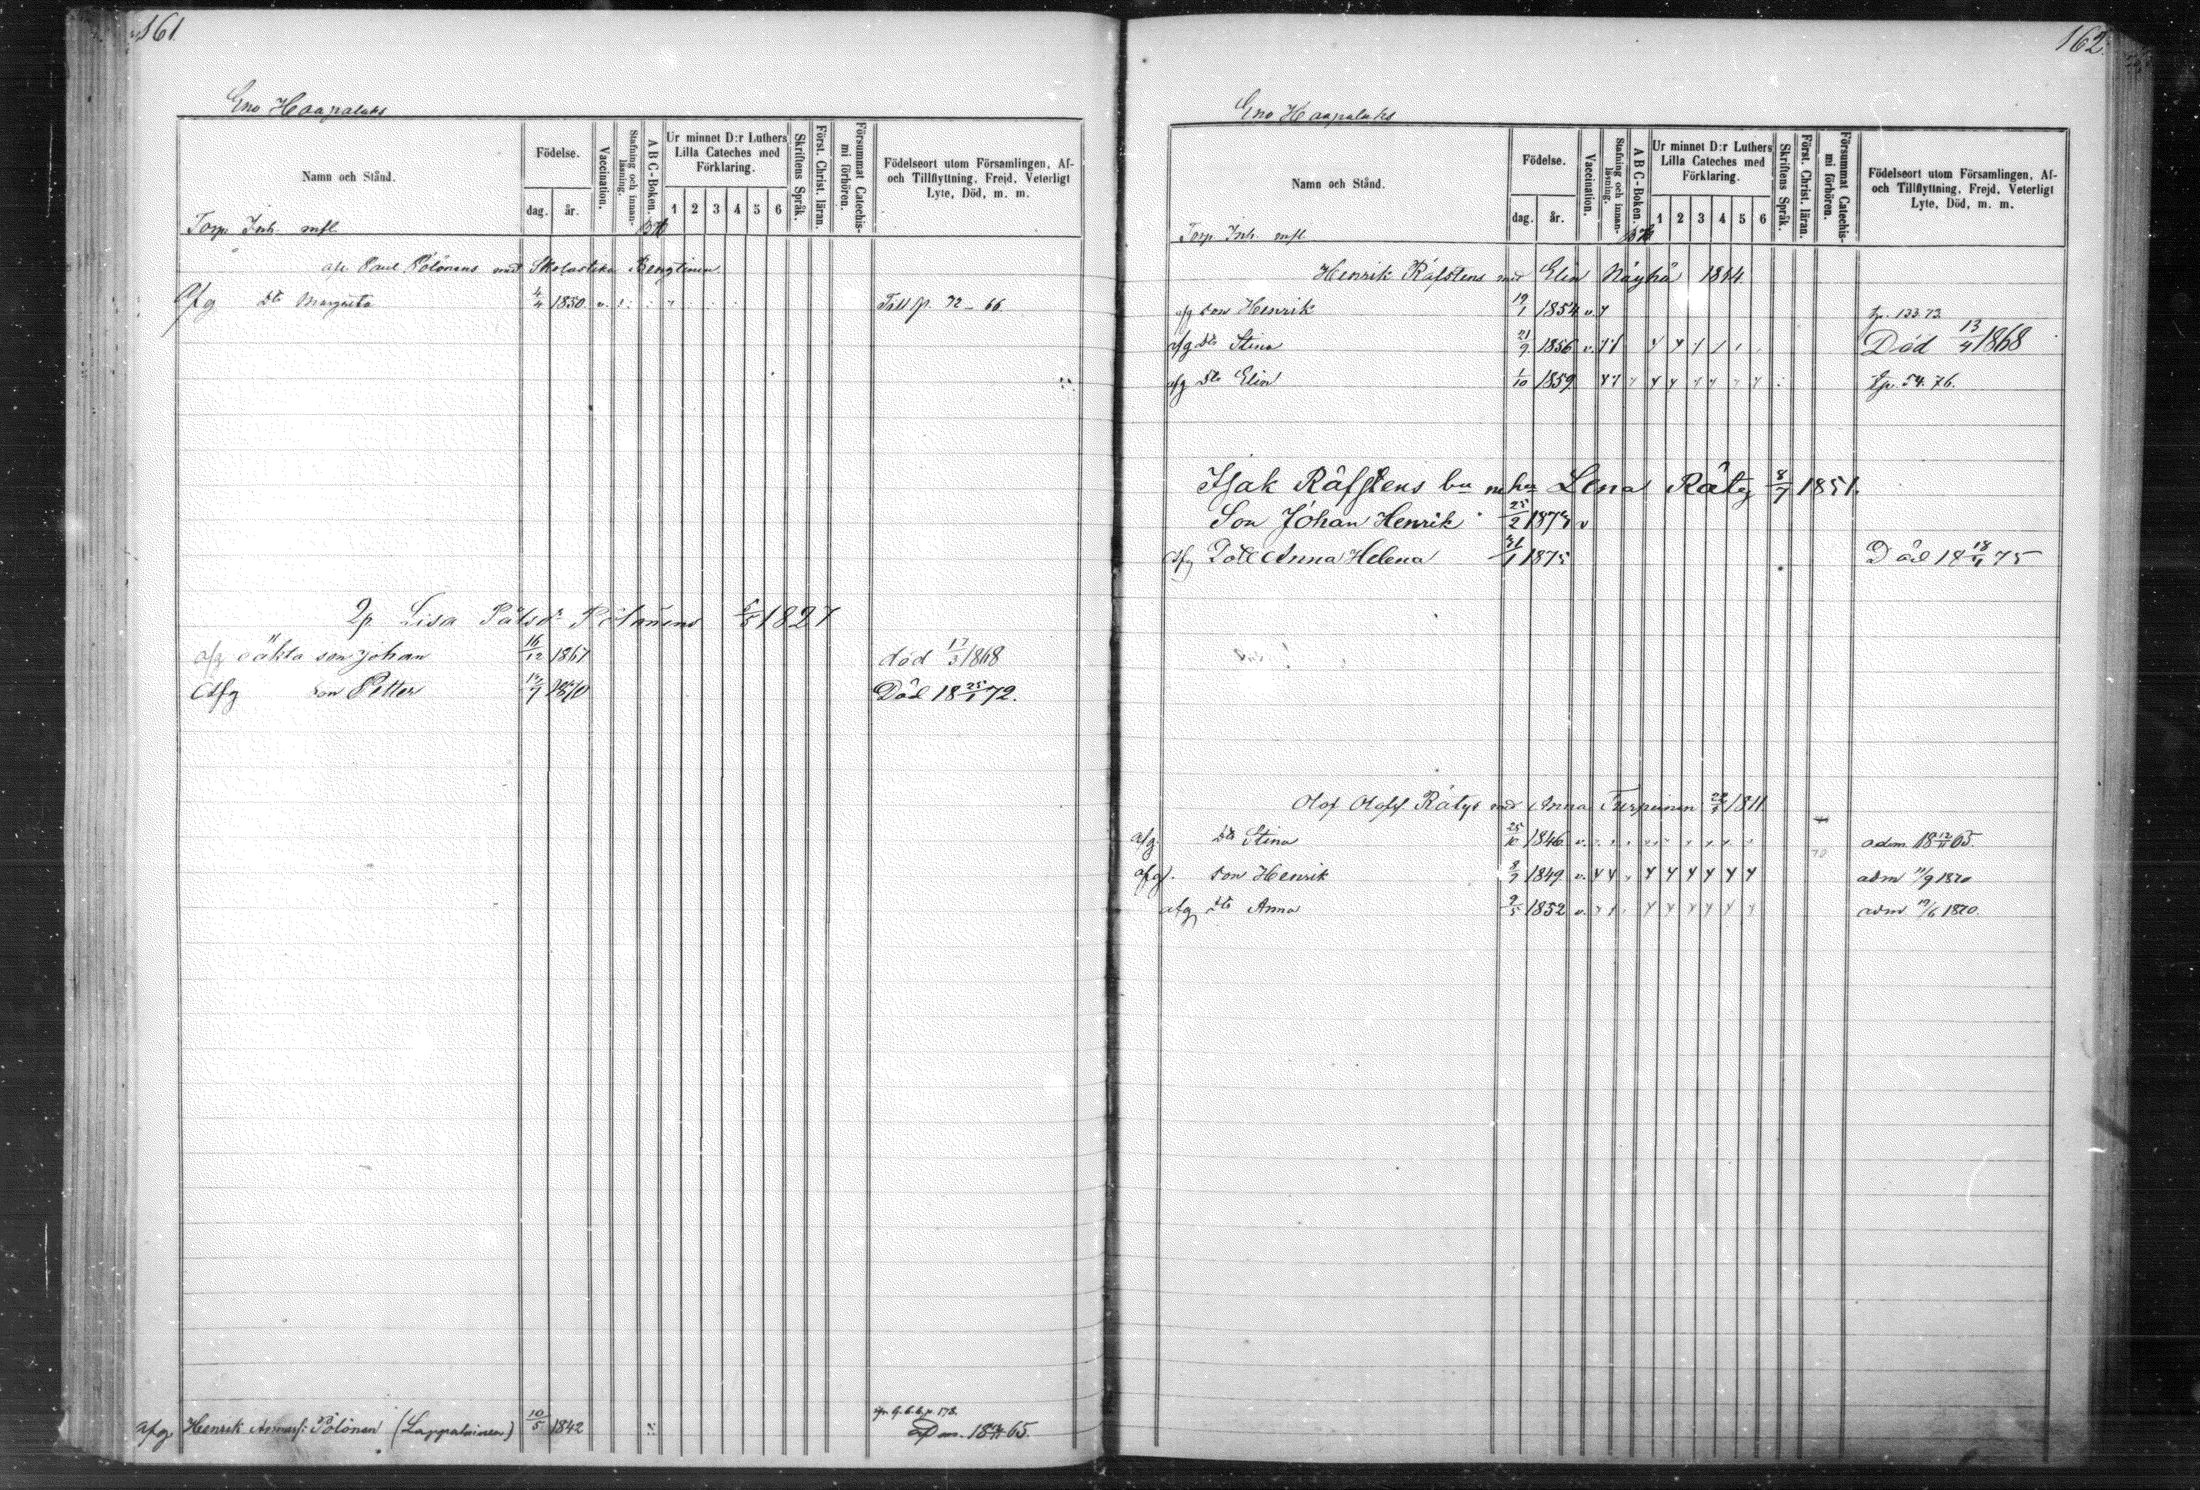 161
Eno Haapalaks
Namn och Stånd.
Födelse.
dag. år.
Vaccination.
Stafning och innanläsning.
A B C-Boken.
Ur minnet D:r Luthers Lilla Cateches med Förklaring.
1 2 3 4 5 6
Skriftens Språk.
Först. Christ. läran.
Försummat Catechismi förhören.
Födelseort utom Församlingen, Af- och Tillflyttning, Frejd, Veterligt Lyte, Död, m. m.
Torp. Inh. mfl.
Paul Pölönens med Skolastika Bengtinen
afg dtr Margareta 4/4 1850 v. p. 72-66
Lisa Pålsdr Pölönens 1827
afg oäkta son Johan 16/12 1867 död 17/3 1868
Afg son Petter 1870 Död 18 25/1 72.
afg Henrik Pölönen (Lappalainen) 10/5 1842 65.
162
Eno Haapalaks
Namn och Stånd.
Födelse.
dag. år.
Vaccination.
Stafning och innanläsning.
A B C-Boken.
Ur minnet D:r Luthers Lilla Cateches med Förklaring.
1 2 3 4 5 6
Skriftens Språk.
Först. Christ. läran.
Försummat Catechismi förhören.
Födelseort utom Församlingen, Af- och Tillflyttning, Frejd, Veterligt Lyte, Död, m. m.
Torp. Inh. mfl.
Henrik Räfstens med Elin Näyhä 1844
afg son Henrik 19/1 1854 v tp. 133 73.
afg dtr Stina 21/9 1856 v. Död 13/4 1868
afg dtr Elin 1/10 1859 tp. 54. 76.
Isak Räfstens Lena Räty 8/7 1851.
Son Johan Henrik 25/2 1873 v
Afg Anna Helena 31/1 1875 Död 18 18/4 75
Olof Olofs. Rätys med Anna Turpeinen 1811
afg. dtr Stina 25/10 1846 v. adm. 18 12/11 65.
afg. son Henrik 8/7 1849 v. adm 11/9 1870
afg dtr Anna 2/5 1852 v. adm 19/6 1870.